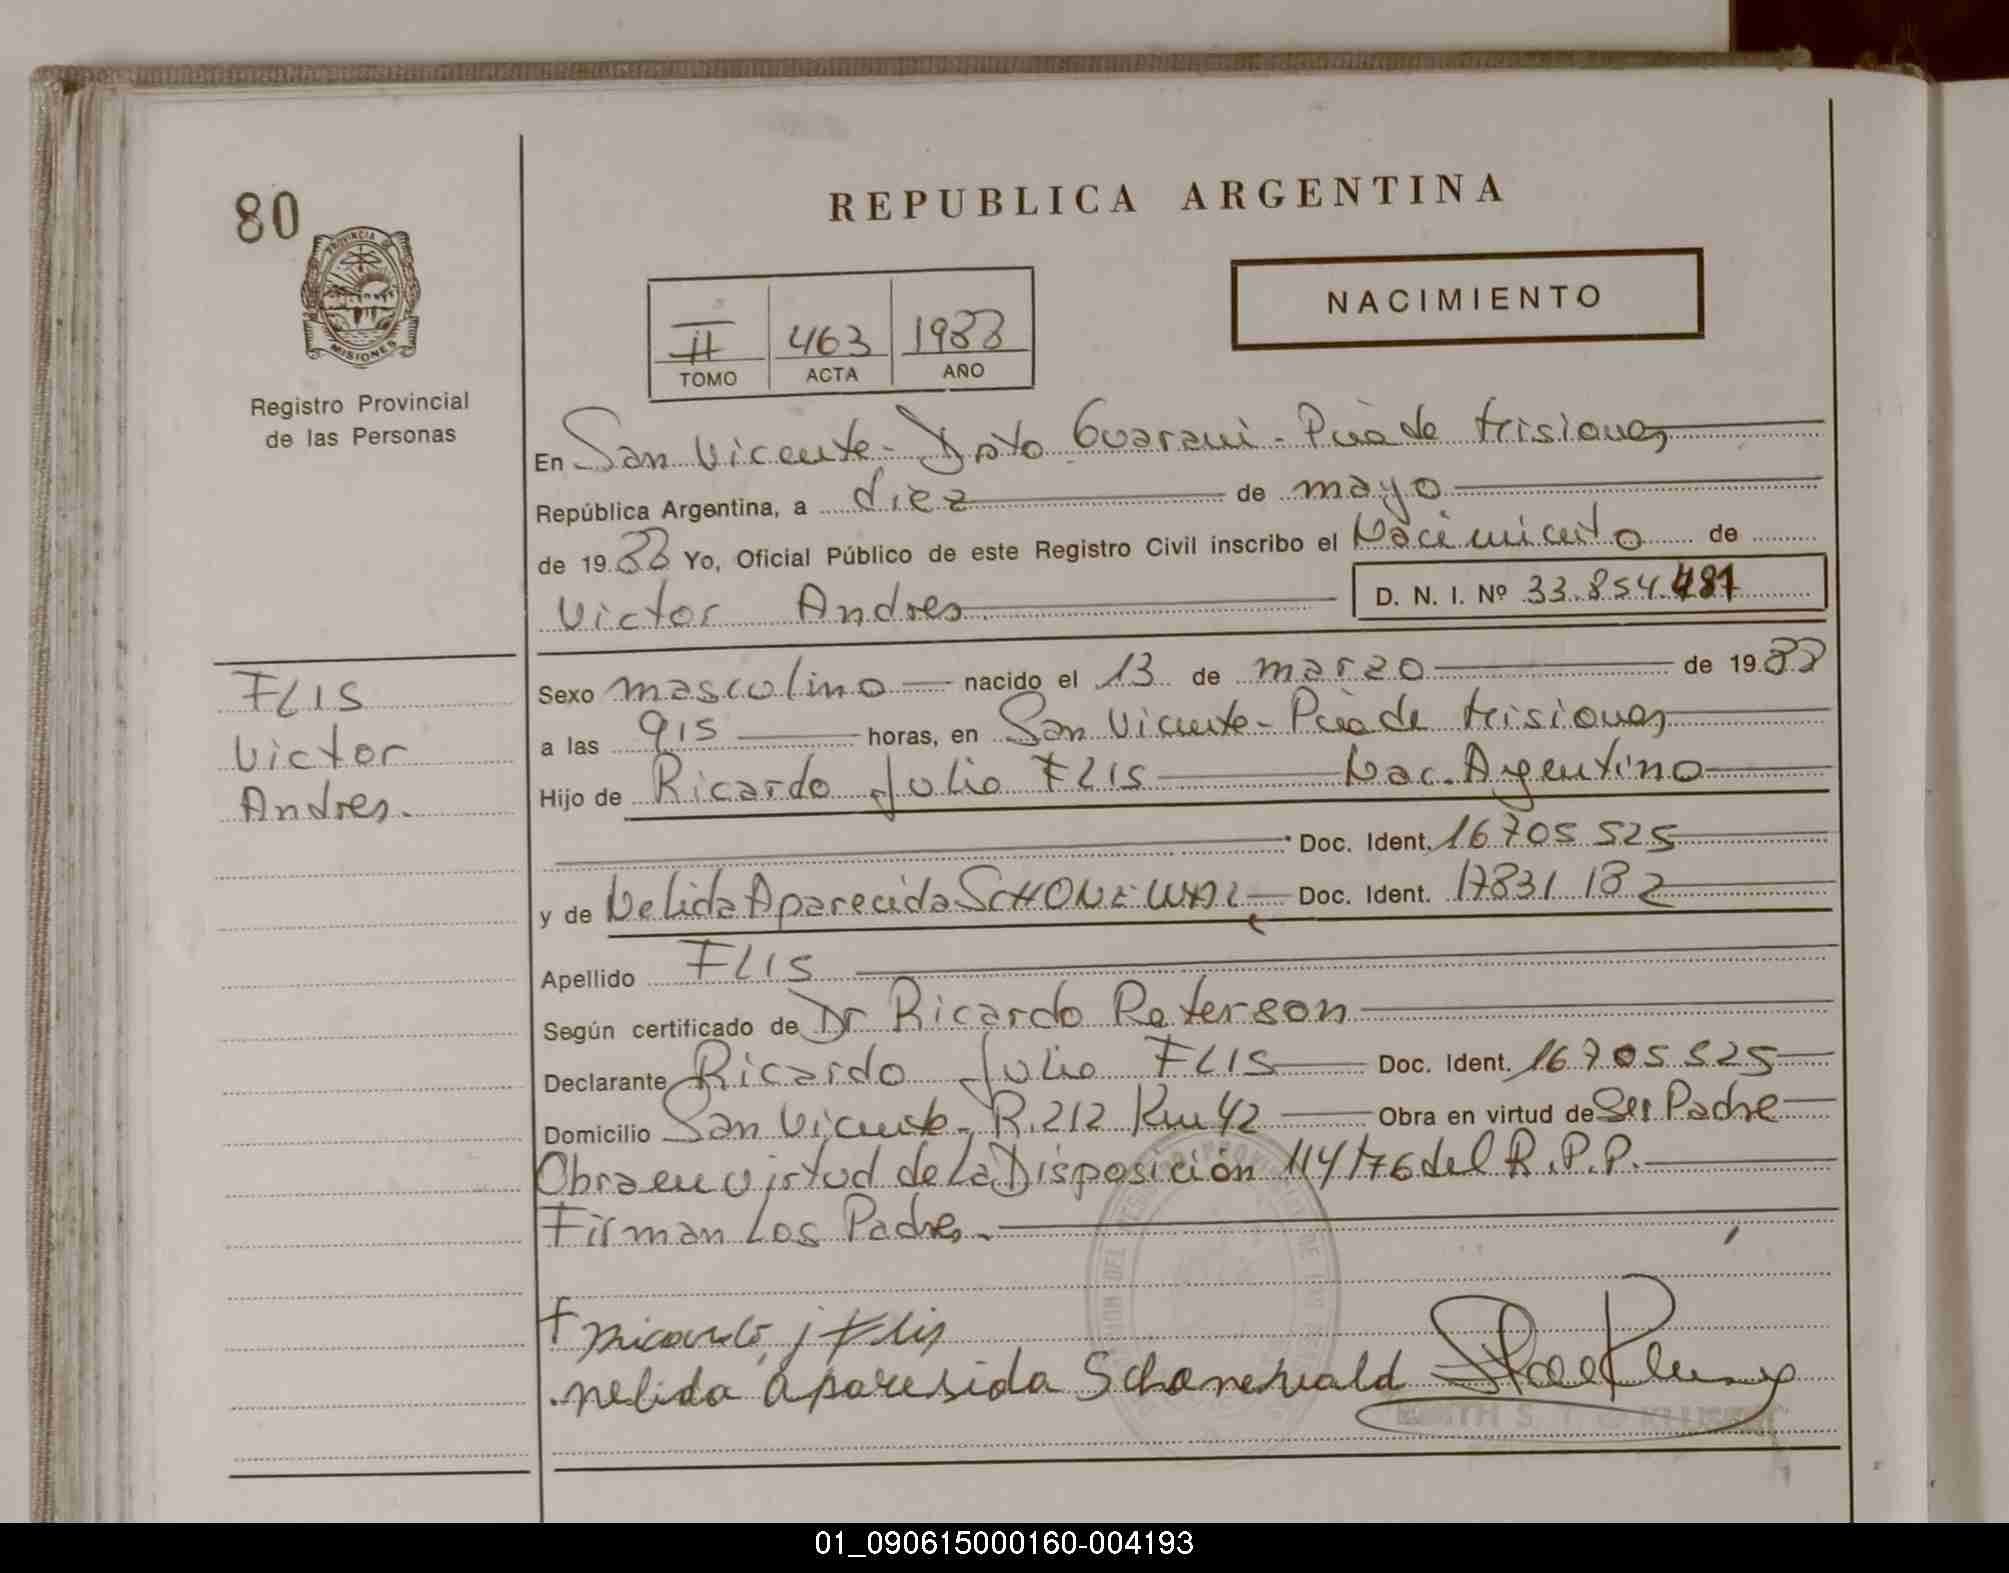 80
REPUBLICA ARGENTINA
PROVINCIA DE
MISIONES
Registro Provincial
de las Personas
NACIMIENTO
II 463 1988
TOMO ACTA AÑO
En San Vicente - Dpto Guarani - Pcia de Misiones
República Argentina, a diez de mayo
de 1988 Yo, Oficial Público de este Registro Civil inscribo el Nacimiento de
Victor Andres D. N. I. Nº 33.854.481
FLIS
Victor
Andres.
Sexo masculino nacido el 13 de marzo de 1988
a las 915 horas, en San Vicente - Pcia de Misiones
Hijo de Ricardo Julio FLIS Nac. Argentino
Doc. Ident. 16705525
y de Nelida Aparecida SCHONEWAL Doc. Ident. 17831182
Apellido FLIS
Según certificado de Dr Ricardo Peterson
Declarante Ricardo Julio FLIS Doc. Ident. 16705525
Domicilio San Vicente - R. 212 Km 42 Obra en virtud de Ser Padre
Obra en virtud de La Disposición 114/76 del R.P.P.
Firman Los Padres.
+ Ricardo j Flis
nelida aparesida Schonewald
01_090615000160-004193